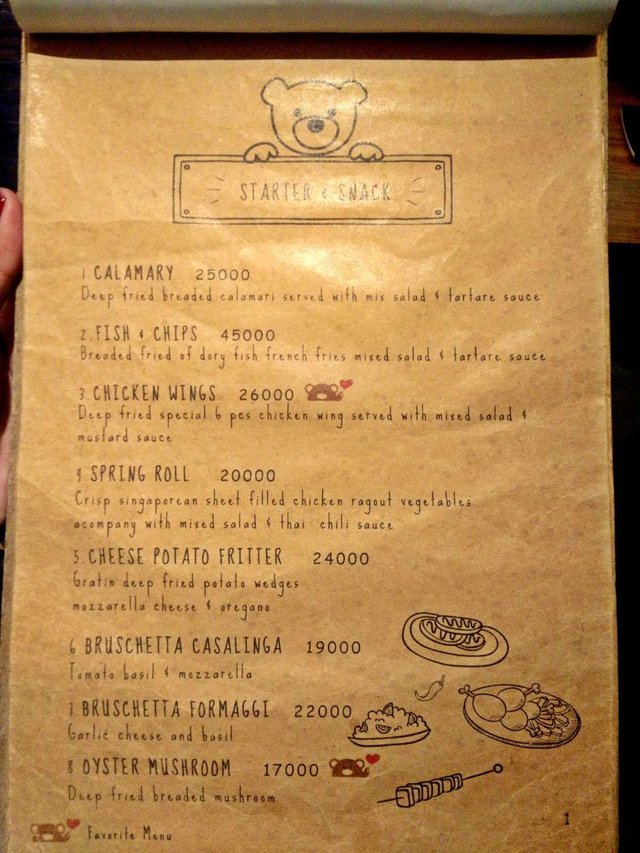 STARTER & SNACK
1 CALAMARY 25000
Deep fried breaded calamari served with mix salad & tartare sauce
2. FISH & CHIPS 45000
Breaded fried of dory fish french fries mixed salad & tartare sauce
3 CHICKEN WINGS 26000
Deep fried special 6 pcs chicken wing served with mixed salad &
mustard sauce
4. SPRING ROLL 20000
Crisp singaporean sheet filled chicken ragout vegetables
acompany with mixed salad & thai chili sauce
5. CHEESE POTATO FRITTER 24000
Gratin deep fried potato wedges
mozzarella cheese & oregano
6 BRUSCHETTA CASALINGA 19000
Tomato basil & mozzarella
7. BRUSCHETTA FORMAGGI 22000
Garlic cheese and basil
8 OYSTER MUSHROOM 17000
Deep fried breaded mushroom
Favorite Menu
1